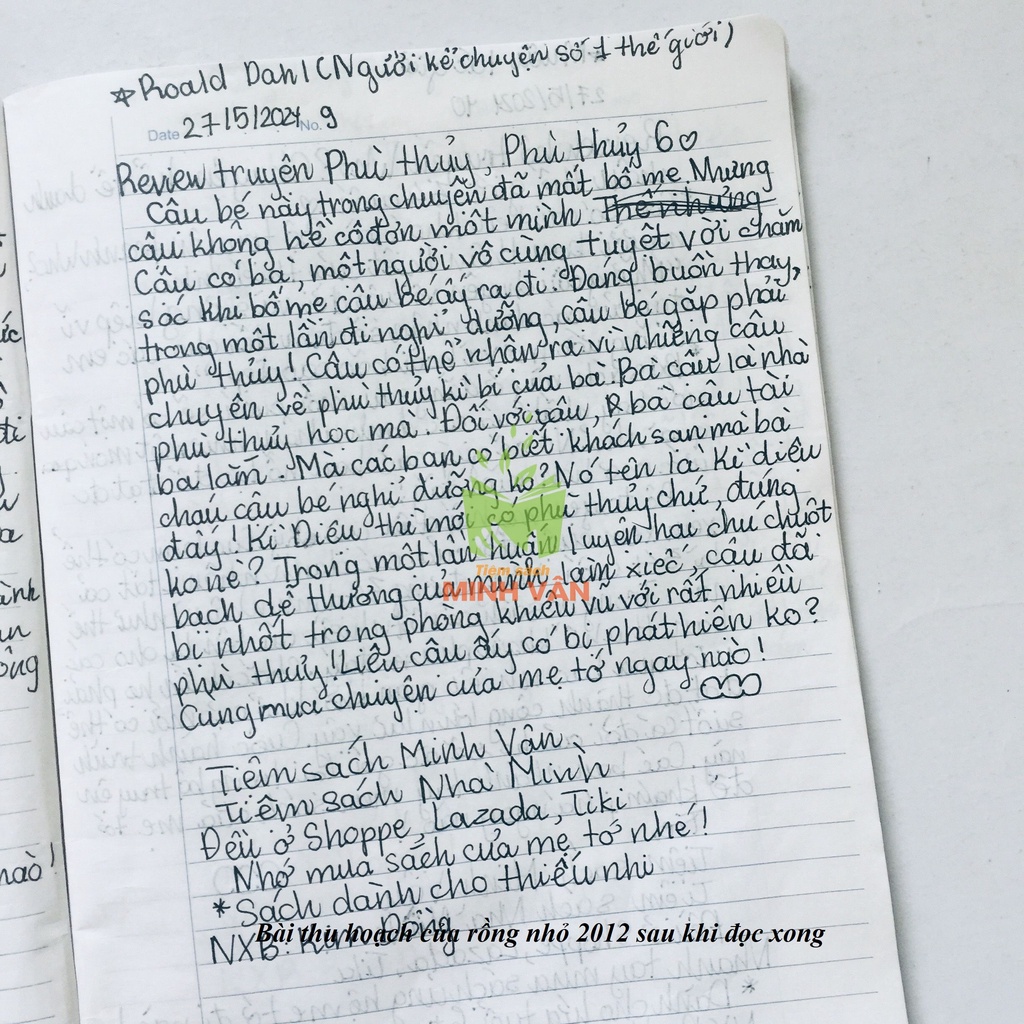 * Roald Dahl (Người kể chuyện số 1 thế giới)
Date 27/5/2024 No. 9
Review truyện Phù thủy, Phù thủy 6♡
Câu bé này trong chuyên đã mất bố mẹ Nhưng
câu không hề cô đơn một mình. Thế nhưng
Câu có bà, một người vô cùng tuyệt vời chăm
sóc khi bố mẹ câu bé ấy ra đi. Đáng buồn thay,
trong một lần đi nghỉ dưỡng, câu bé gặp phải
phù thủy! Câu có thể nhân ra vì những câu
chuyên về phù thủy kì bí của bà. Bà câu là nhà
phù thủy hoc mà. Đối với câu, bà câu tài
ba lắm. Mà các ban có biết khách san mà bà
cháu câu bé nghỉ dưỡng ko? Nó tên là Kì diêu
đấy! Kì Diêu thì mới có phù thủy chứ, đúng
ko nè? Trong một lần huấn luyên hai chú chuột
bach dễ thương của mình làm xiếc, câu đã
bi nhốt trong phòng khiêu vũ với rất nhiều
phù thủy! Liêu câu ấy có bi phát hiên ko?
Cùng mua chuyên của mẹ tớ ngay nào!
Tiêm sách Minh Vân
Tiêm sách Nhà Mình
Đều ở Shoppe, Lazada, Tiki
Nhớ mua sách của mẹ tớ nhé!
* Sách dành cho thiếu nhi
NXB: Kim Đồng
Bài thu hoạch của rồng nhỏ 2012 sau khi đọc xong
Tiệm sách
MINH VÂN
nào!